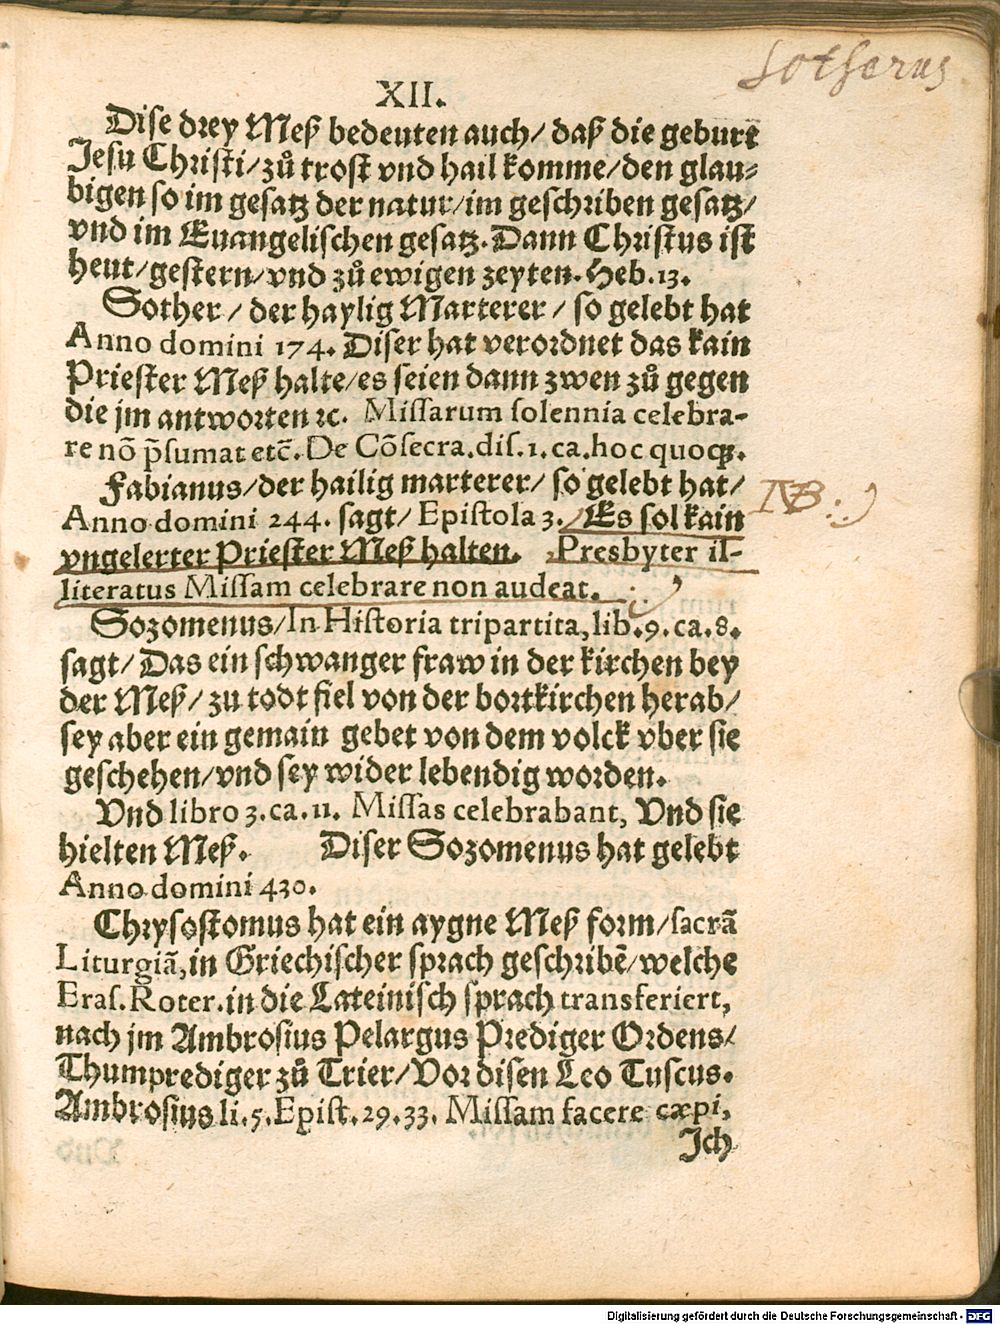 Lotherus
XII.
Dise drey Meß bedeuten auch/ daß die geburt
Jesu Christi/zů trost vnd hail komme/den glau⸗
bigen so im gesatz der natur/im geschriben gesatz/
vnd im Euangelischen gesatz. Dann Christus ist
heut/gestern/vnd zů ewigen zeyten. Heb.13.
Sother/ der haylig Marterer/ so gelebt hat
Anno domini 174. Diser hat verordnet das kain
Priester Meß halte/es seien dann zwen zů gegen
die jm antworten ꝛc. Miſſarum ſolennia celebra-
re nō p̄ſumat etc̄. De Cōſecra.diſ.1.ca.hoc quoqꝫ.
Fabianus/der hailig marterer/ so gelebt hat/
Anno domini 244. sagt/ Epiſtola 3. Es sol kain
NB:
vngelerter Priester Meß halten. Presbyter il-
literatus Miſſam celebrare non audeat.
Sozomenus/In Hiſtoria tripartita,lib.9.ca.8.
sagt/ Das ein schwanger fraw in der kirchen bey
der Meß/ zu todt fiel von der bortkirchen herab/
sey aber ein gemain gebet von dem volck vber sie
geschehen/vnd sey wider lebendig worden.
Vnd libro 3.ca.11. Miſſas celebrabant, Vnd sie
hielten Meß. Diser Sozomenus hat gelebt
Anno domini 430.
Chrysostomus hat ein aygne Meß form/ſacrā
Liturgiā,in Griechischer sprach geschribē/welche
Eraſ.Roter.in die Lateinisch sprach transferiert,
nach jm Ambrosius Pelargus Prediger Ordens/
Thumprediger zů Trier/Vor disen Leo Tuscus.
Ambrosius li.5.Epiſt.29.33. Miſſam facere cæpi,
Jch
Digitalisierung gefördert durch die Deutsche Forschungsgemeinschaft - DFG